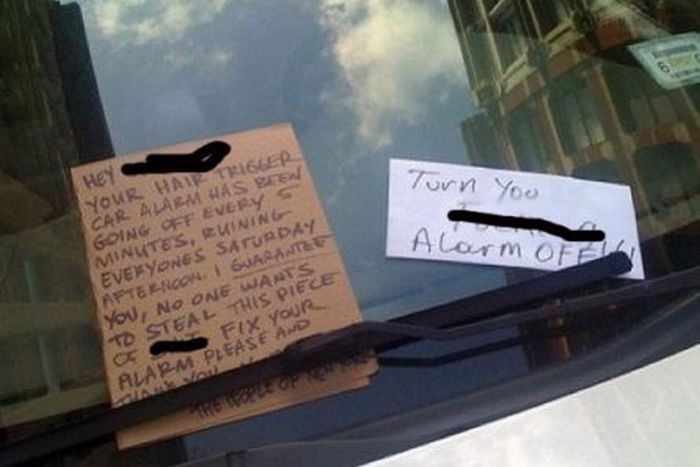 HEY
YOUR HAIR TRIGGER
CAR ALARM HAS BEEN
GOING OFF EVERY 5
MINUTES, RUINING
EVERYONES SATURDAY
AFTERNOON. I GUARANTEE
YOU, NO ONE WANTS
TO STEAL THIS PIECE
OF FIX YOUR
ALARM PLEASE AND
THANK YOU
THE PEOPLE OF
Turn You
Alarm OFF!!
6